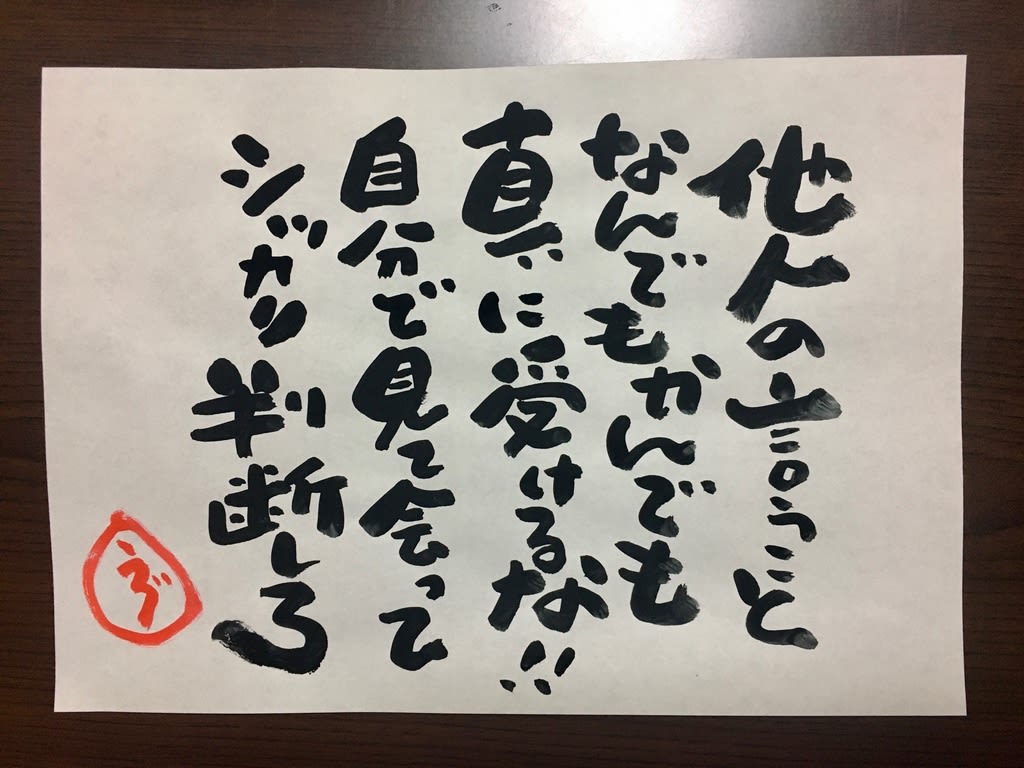 他人の言うこと
なんでもかんでも
真に受けるな!!
自分で見て会って
シッカリ判断しろ